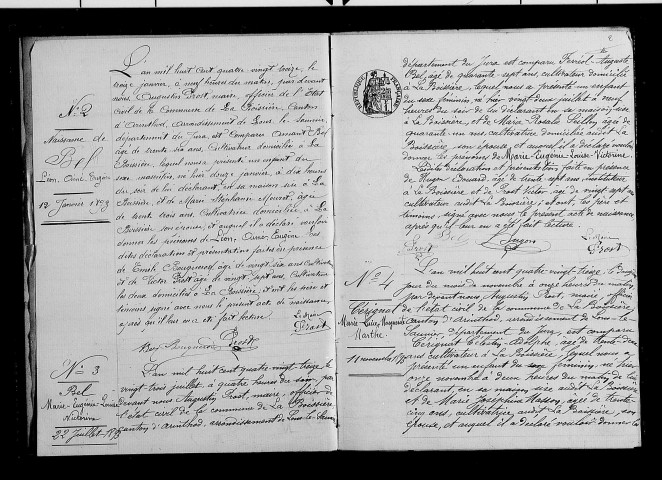 N° 2
Naissance de
Bel
Léon, Aimé, Eugène
12 Janvier 1893
L'an mil huit cent quatre vingt treize, le
treize janvier, à onze heures du matin, par devant
nous Augustin Prost, maire, officier de l'Etat
civil de la Commune de La Boissière, Canton
d'Arinthod, arrondissement de Lons le Saunier,
département du Jura, est Comparu Armand Bel
âgé de trente six ans, Cultivateur domicilié à La
Boissière, lequel nous a présenté un enfant du
sexe masculin, né hier douze janvier, à dix heures
du soir de lui déclarant en sa maison sise à La
Boissière, et de Marie Stéphanie
âgée de trente trois ans, Cultivatrice domiciliée à La
Boissière son épouse, et auquel il a déclaré vouloir
donner les prénoms de Léon, Aimé, Eugène. Les
dites déclaration et présentation faites en présence
de Emile Rougemont âgé de vingt six ans Cultivateur
et de Victor Prost âgé de vingt sept ans, Cultivateur
les deux domiciliés à La Boissière, et ont les père et
témoins signé avec nous le présent acte de naissance
après qu'il leur en a été fait lecture.
Bel Prost
Prost
N° 3
Bel
Marie-Eugénie-Louise
Victorine
22 Juillet 1893
L'an mil huit cent quatre vingt treize le
vingt trois juillet à quatre heures du soir, par
devant nous Augustin Prost, maire, officier de
l'état civil de la commune de La Boissière
canton d'Arinthod, arrondissement de Lons-le-Saunier
département du Jura est comparu Auguste
Bel, âgé de quarante-sept ans, cultivateur domicilié
à La Boissière, lequel nous a présenté un enfant
du sexe féminin, né hier vingt deux juillet à neuf
heures du soir de lui déclarant en sa maison sise
à La Boissière, et de Marie Rosalie âgée de
quarante un ans cultivatrice domiciliée audit La
Boissière, son épouse, et auquel il a déclaré vouloir
donner les prénoms de Marie-Eugénie-Louise-Victorine.
Lesdites déclaration et présentation faites en présence
de Edouard âgé de trente sept ans, instituteur
à La Boissière et de Prost Victor âgé de vingt sept ans
cultivateur audit La Boissière; et ont, les père et
témoins signé avec nous le présent acte de naissance
après qu'il leur en a été fait lecture.
Prost Bel Prost
N° 4
Cérignat
Marie-Louise
Marthe
11 novembre 1893
L'an mil huit cent quatre vingt treize, le
jour du mois de novembre à onze heures du matin,
par devant nous Augustin Prost, maire, officier
de l'état civil de la commune de La Boissière
canton d'Arinthod, arrondissement de Lons-le
Saunier, département du Jura, est comparu
Cérignat âgé de trente-
ans cultivateur à La Boissière, lequel nous a
présenté un enfant du sexe féminin, né hier
onze novembre à deux heures du matin de lui
déclarant, en sa maison, sise audit La Boissière
et de Marie Joséphine Masson, âgée de trente-
cinq ans, cultivatrice, audit La Boissière, son
épouse, et auquel il a déclaré vouloir donner les